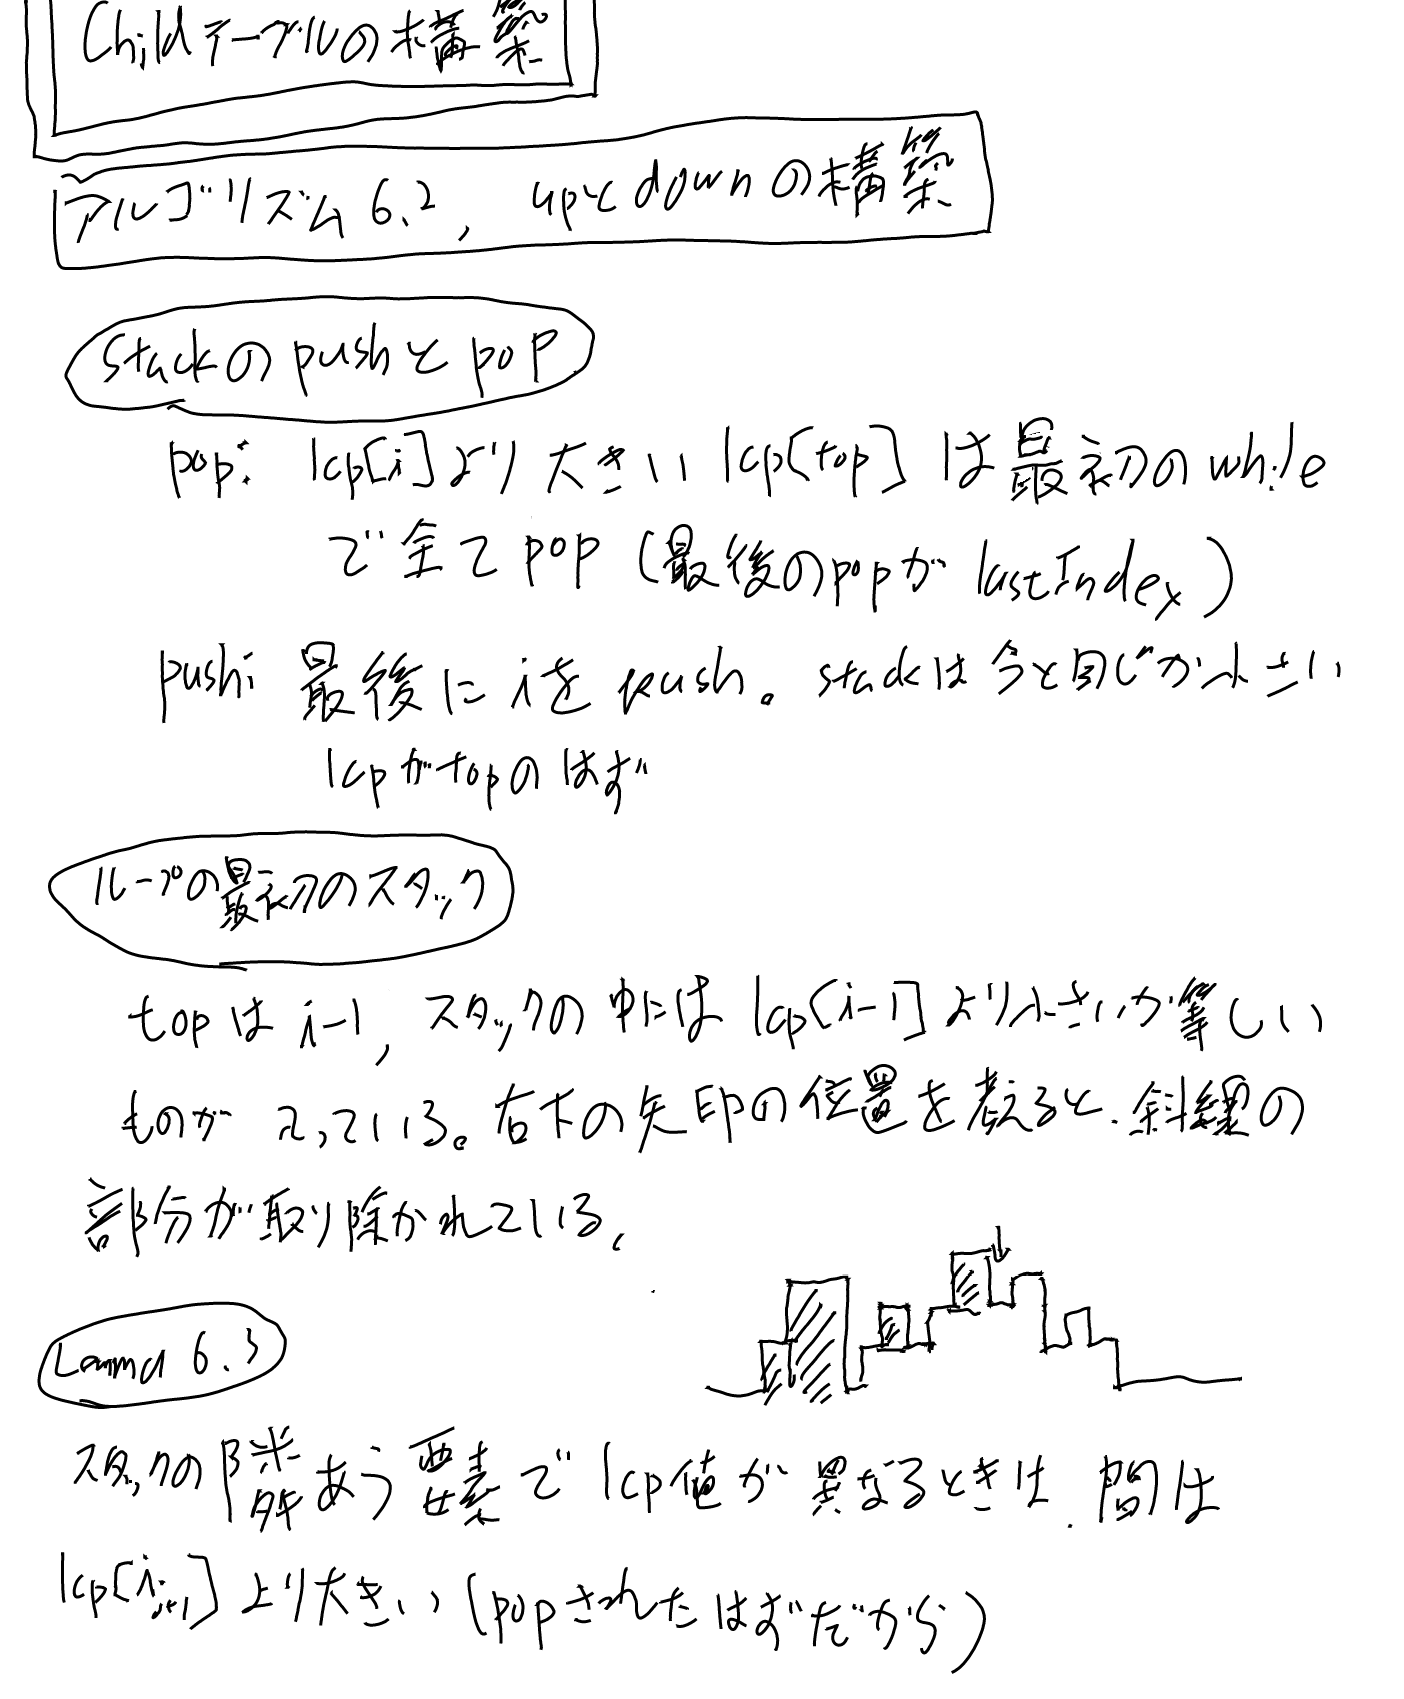 Childテーブルの構築
アルゴリズム6.2, upとdownの構築
stackのpushとpop
pop: lcp[i]より大きいlcp[top]は最初のwhile
で全てpop (最後のpopがlastIndex)
push: 最後にiをpush。stackは今と同じか小さい
lcpがtopのはず
ループの最初のスタック
topはi-1, スタックの中にはlcp[i-1]より小さいか等しい
ものが入っている。右下の矢印の位置を考えると、斜線の
部分が取り除かれている。
Lemma 6.3
スタックの隣あう要素でlcp値が異なるときは、間は
lcp[i_{j+1}]より大きい(popされたはずだから)